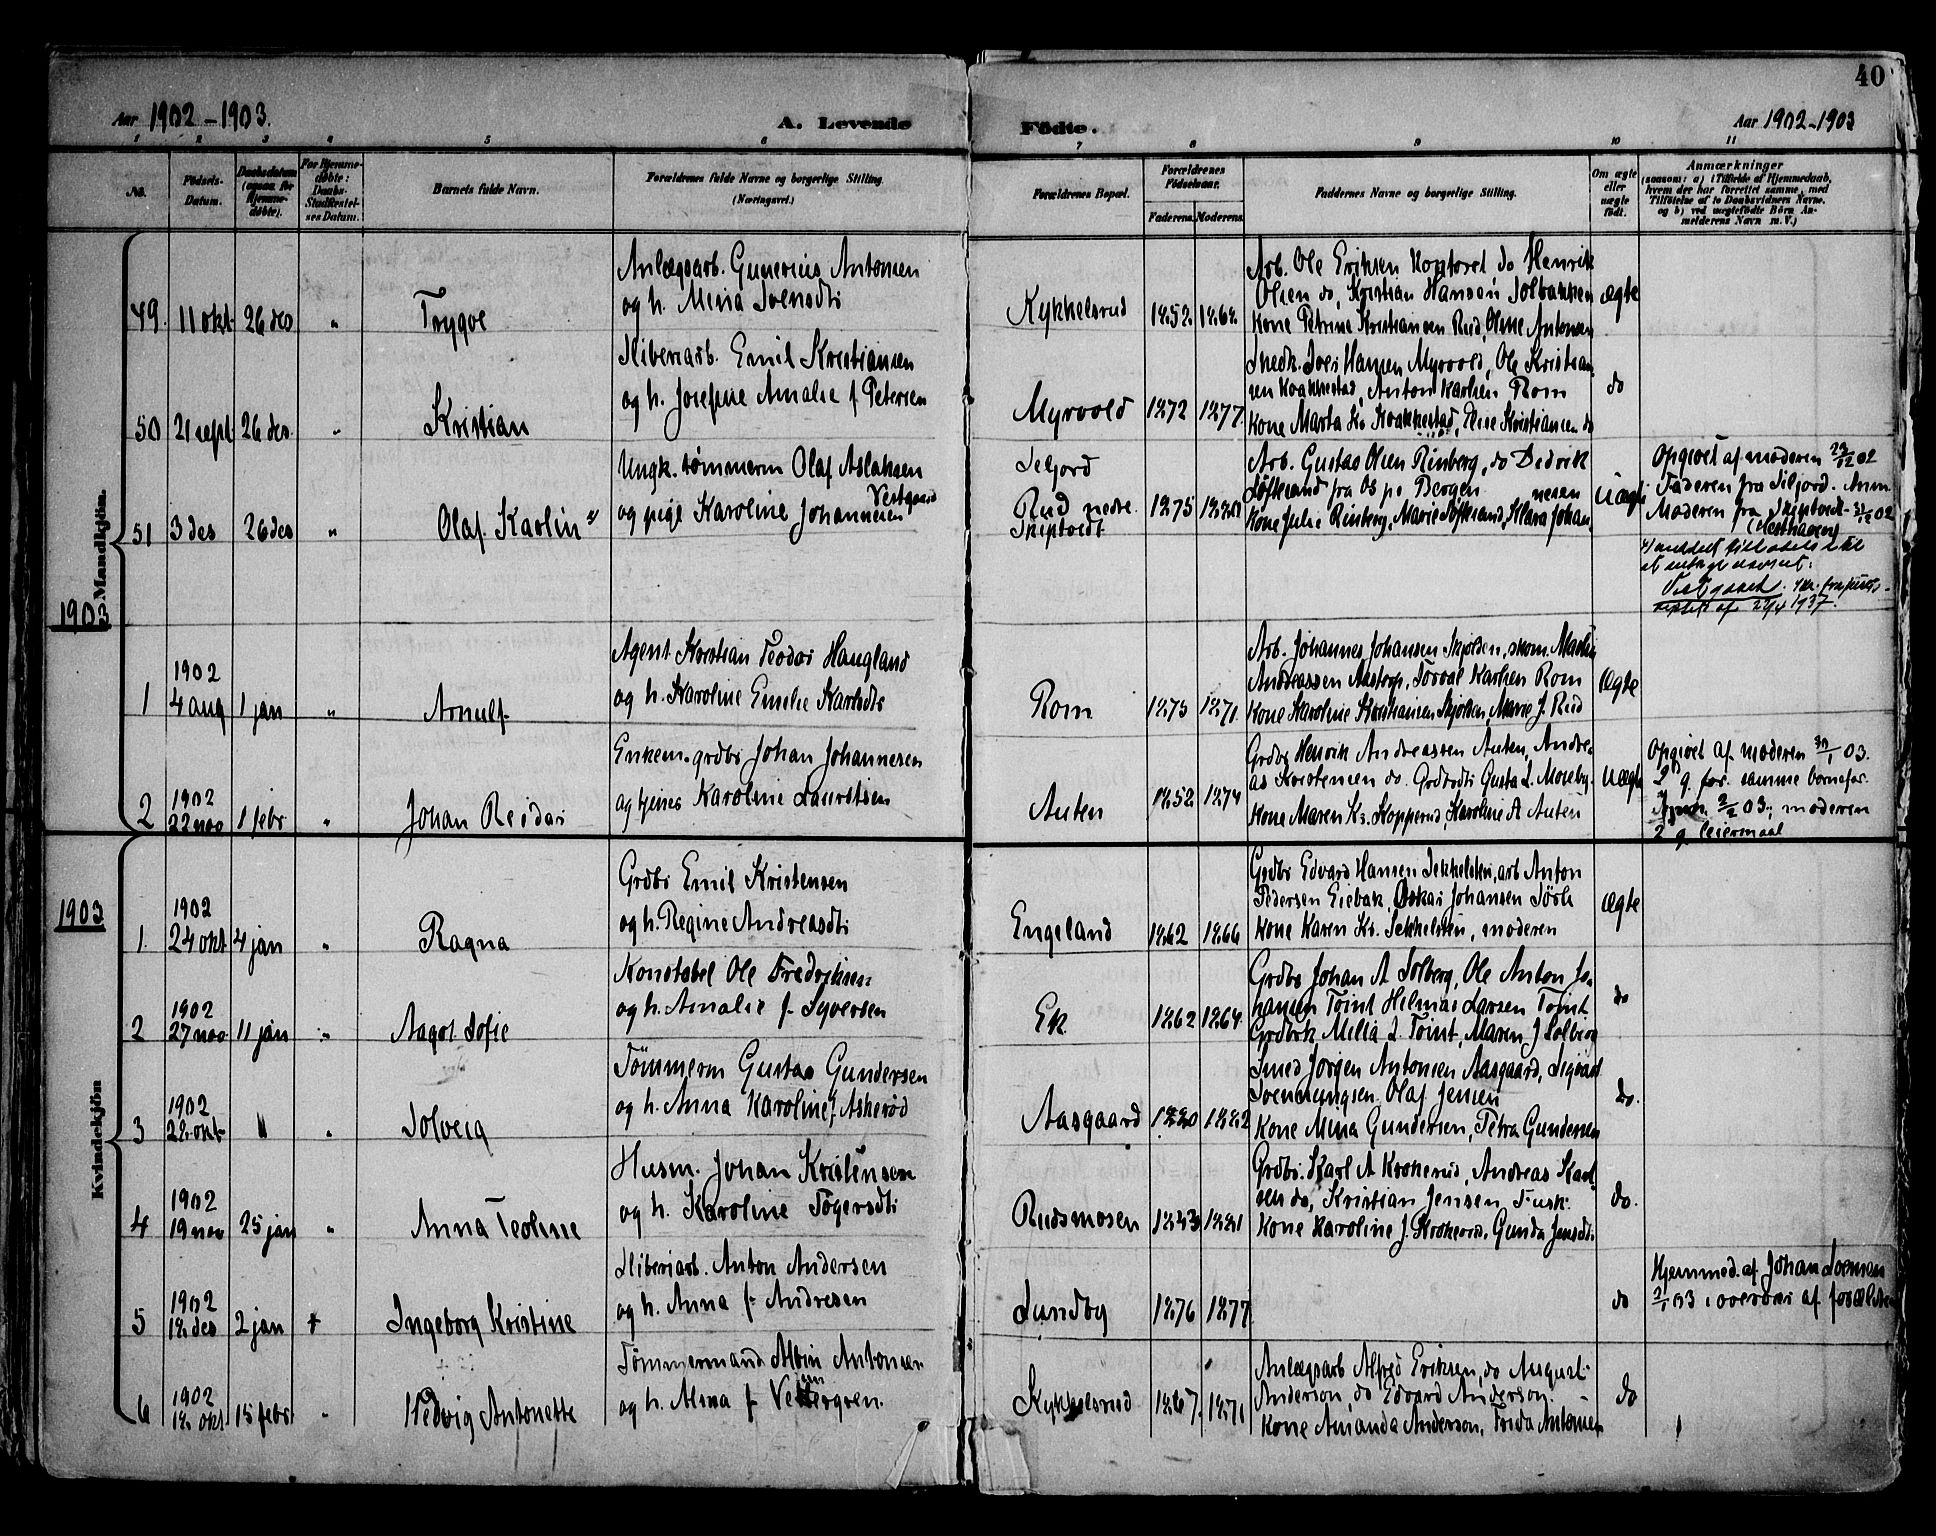 Aar 1902-1903.
A. Levende Födte.
Aar 1902-1903
40
1 2 3 4 5 6 7 8 9 10 11
No.
Födsels-Datum.
Daabsdatum (ogsaa for Hjemmedøbte).
For Hjemmedøbte: Daabs-Stadfæstelses Datum.
Barnets fulde Navn.
Forældrenes fulde Navne og borgerlige Stilling. (Næringsvei.)
Forældrenes Bopæl.
Forældrenes Födselsaar.
Faderens. Moderens.
Faddernes Navne og borgerlige Stilling.
Om ægte eller uægte födt.
Anmærkninger
(saasom: a) i Tilfælde af Hjemmedaab,
hvem der har forrettet samme, med
Tilföielse af to Daabsvidners Navne,
og b) ved uægtefödte Börn An-
melderens Navn m. V.)
Mandkjön.
49. 11 okt 26 des " Trygve
Anlægsarb. Gunerius Antonsen
og h. Mina Svensdtr
Kykkelsrud 1852. 1862.
Arb. Ole Eriksen Kontoret do Henrik
Olsen do, Kristian Hansen Solbakken
Kone Petrine Kristiansen Rud, Oline Antonsen
ægte
50 21 sept 26 des " Kristian
Sliberiarb. Emil Kristiansen
og h. Josefine Amalie f. Petersen
Myrvold 1872 1877.
Snedk. Iver Hansen Myrvold, Ole Kristian-
sen Kvakkestad, Anton Karlsen Rom
Kone Marta Kr. Kvakkestad, Elise Kristiansen do
do
51 3 des 26 des " Olaf Karlin
Ungk. tømmerm Olaf Aslaksen Vestgaard
og pige Karoline Johannesen
Seljord
Rud nedre
Skiptvedt
1875 1881
Arb. Gustav Olsen Rinberg, do Didrik
Løftesand fra Os pr Bergen
Kone Julie Rinberg, Marie Løftesand, Klara Johan-
nesen
Uægte
Opgivet af moderen 29/12 02
Faderen fra Siljord. Anm
Moderen fra Skiptvedt 31/12 02
meddelt tilladelse til
Vestgaard.
af 22/4 1937.
1903
1 1902 4 aug 1 jan " Arnulf
Agent Kristian Teodor Haugland
og h. Karoline Emilie Karlsdtr
Rom 1875 1871.
Arb. Johannes Johansen Skjolden, skom. Martin
Andreassen Aastorp, Torval Karlsen Rom
Kone Karoline Kristiansen Skjolden, Marie J. Rud
ægte
2 1902 22 nov 1 febr " Johan Reidar
Enkem. grdbr Johan Johannesen
og tjenes Karoline Lauritsen
Auten 1852 1874
Grdbr Henrik Andreassen Auten, Andre-
as Kristensen do. Grdbrdtr Gusta L. Moseby
Kone Maren Kr. Kopperud, Karoline A Auten
Uægte
Opgivet af moderen 30/1 03.
2 g. for samme barnefar
2/2 03; moderen
2 g leiermaal
Kvindekjön
1903
1. 1902 24 okt 4 jan " Ragna
Grdbr Emil Kristensen
og h. Regine Andreasdtr
Engeland 1862 1866
Grdbr Edvard Hansen Sekkelsten, arb Anton
Pedersen Eiebak, Oskar Johansen Sørli
Kone Karen Kr. Sekkelsten, moderen
ægte
2 1902 27 nov 11 jan " Aagot Sofie
Konstabel Ole Fredriksen
og h. Amalie f. Syversen
Ek 1862 1864.
Grdbr Johan A Solberg, Ole Anton Jo-
hansen Toint Hilmar Larsen Toint
Grdbrk Milla L Toint, Maren J Solberg
do
3 1902 22. okt " " Solveig
Tømmerm Gustav Gundersen
og h. Anna Karoline f. Askerød
Aasgaard 1880 1882
Smed Jørgen Antonsen Aasgaard, Sigvart
Svenningsen Olaf Jensen
Kone Mina Gundersen, Petra Gundersen
do.
4 1902 19 nov 25 jan " Anna Teoline
Husm. Johan Kristensen
og h. Karoline Togersdtr
Rudsmosen 1843 1861
Grdbr. Karl A Krokerud, Andreas Karl-
sen do, Kristian Jensen Fusk.
Kone Karoline J. Krokerud, Gunda Jensdtr.
do.
5 1902 18. des 2 jan + Ingeborg Kristine
Sliberiarb. Anton Andersen
og h. Anna f. Andresen
Lundby 1876 1877
do
Hjemmed. af Johan
2/1 03 i overvær af forældrene
6 1902 18. okt 15 febr " Hedvig Antonette
Tømmermand Alvin Antonsen
og h. Alma f.
Kykkelsrud 1867. 1871
Anlægsarb Alfred Eriksen, do August
Anderson, do Edvard Anderson.
Kone Amanda Anderson, Frida Antonsen
do